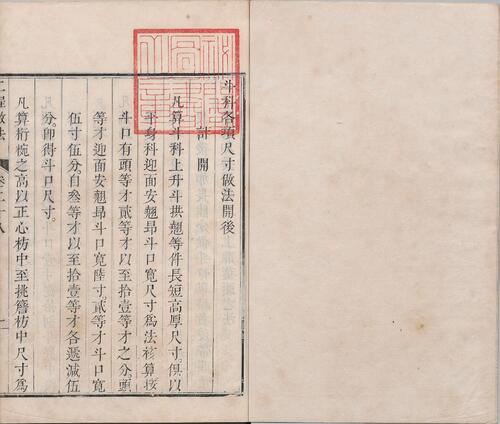 斗科各項尺寸做法開後
計開
凡算斗科上升斗拱翹等件長短高厚尺寸俱以
平身科迎面安翹昂斗口寬尺寸為法核算按
斗口有頭等才貳等才以至拾壹等才之分頭
等才迎面安翹昂斗口寬陸寸貳等才斗口寬
伍寸伍分自叁等才以至拾壹等才各遞減伍
分即得斗口尺寸
凡算桁椀之高以正心枋中至挑簷枋中尺寸為
工程做法 卷二十八 一